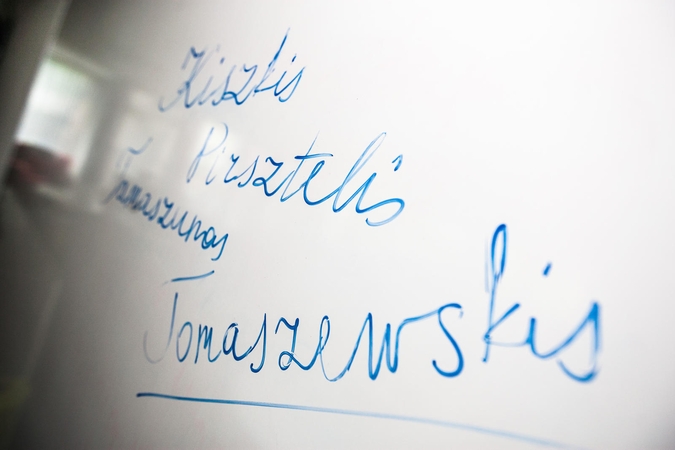 Kisztis
Pirsztelis
Tamaszunas
Tomaszewskis